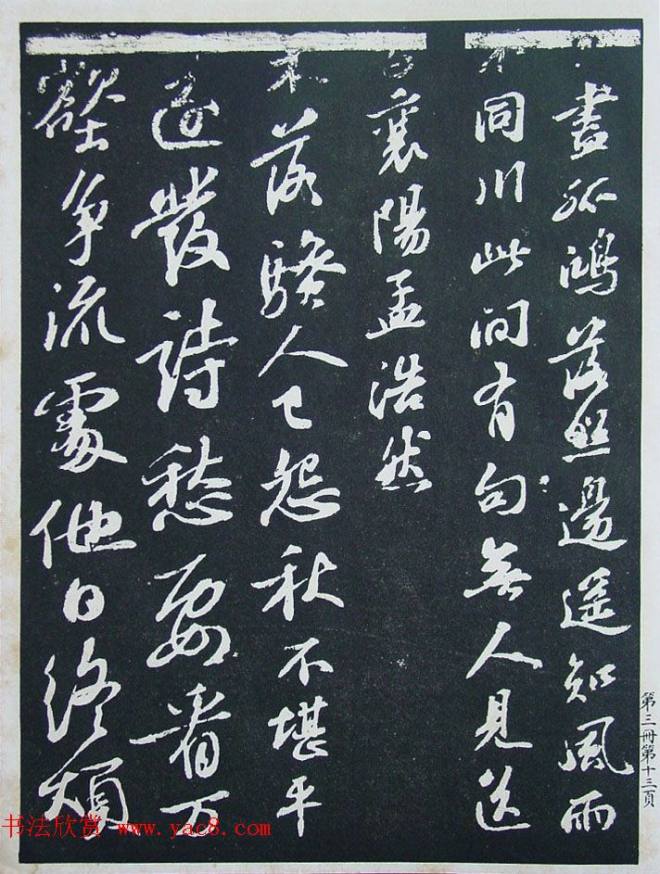 盡孤鴻落照邊遥知風雨
不同川此間有句無人見送
襄陽孟浩然
木落騷人已怨秋不堪平
遠發詩愁要看万
壑争流處他日終煩
第三冊第十三頁
书法欣赏 www.yac8.com